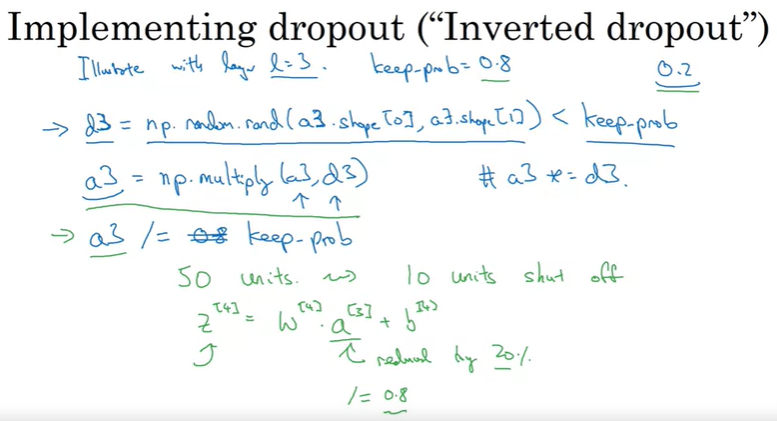 Implementing dropout ("Inverted dropout")
Illustrate with layer l=3. keep-prob= 0.8 0.2
→ d3 = np.random.rand(a3.shape[0], a3.shape[1]) < keep-prob
a3 = np.multiply(a3, d3) # a3 *= d3.
→ a3 /= 0.8 keep-prob
50 units. ⇝ 10 units shut off
z^[4] = W^[4] · a^[3] + b^[4]
reduced by 20%
/= 0.8